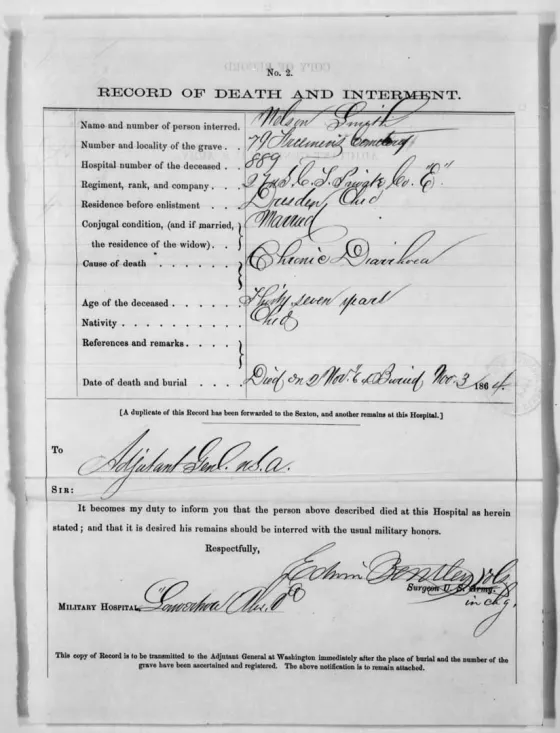 No. 2.
RECORD OF DEATH AND INTERMENT.
Name and number of person interred. Nelson Smyth
Number and locality of the grave . . 79 Freemen's Cemetery
Hospital number of the deceased . . 889
Regiment, rank, and company . . . 27 U.S.C.T. Private Co. "E"
Residence before enlistment . . . Dresden, Ohio
Conjugal condition, (and if married, Married
the residence of the widow) . . .
Cause of death . . . . . . . Chronic Diarrhoea
Age of the deceased . . . . . Thirty seven years
Nativity . . . . . . . . . . Ohio
References and remarks . . . . .
Date of death and burial . . . . Died on 2 Nov. & Buried Nov. 3 1864.
[A duplicate of this Record has been forwarded to the Sexton, and another remains at this Hospital.]
To
Adjutant Genl. U.S.A.
SIR:
It becomes my duty to inform you that the person above described died at this Hospital as herein
stated; and that it is desired his remains should be interred with the usual military honors.
Respectfully,
Edwin Bentley
Surgeon U. S. Army. Vols
in chg.
MILITARY HOSPITAL,
This copy of Record is to be transmitted to the Adjutant General at Washington immediately after the place of burial and the number of the
grave have been ascertained and registered. The above notification is to remain attached.